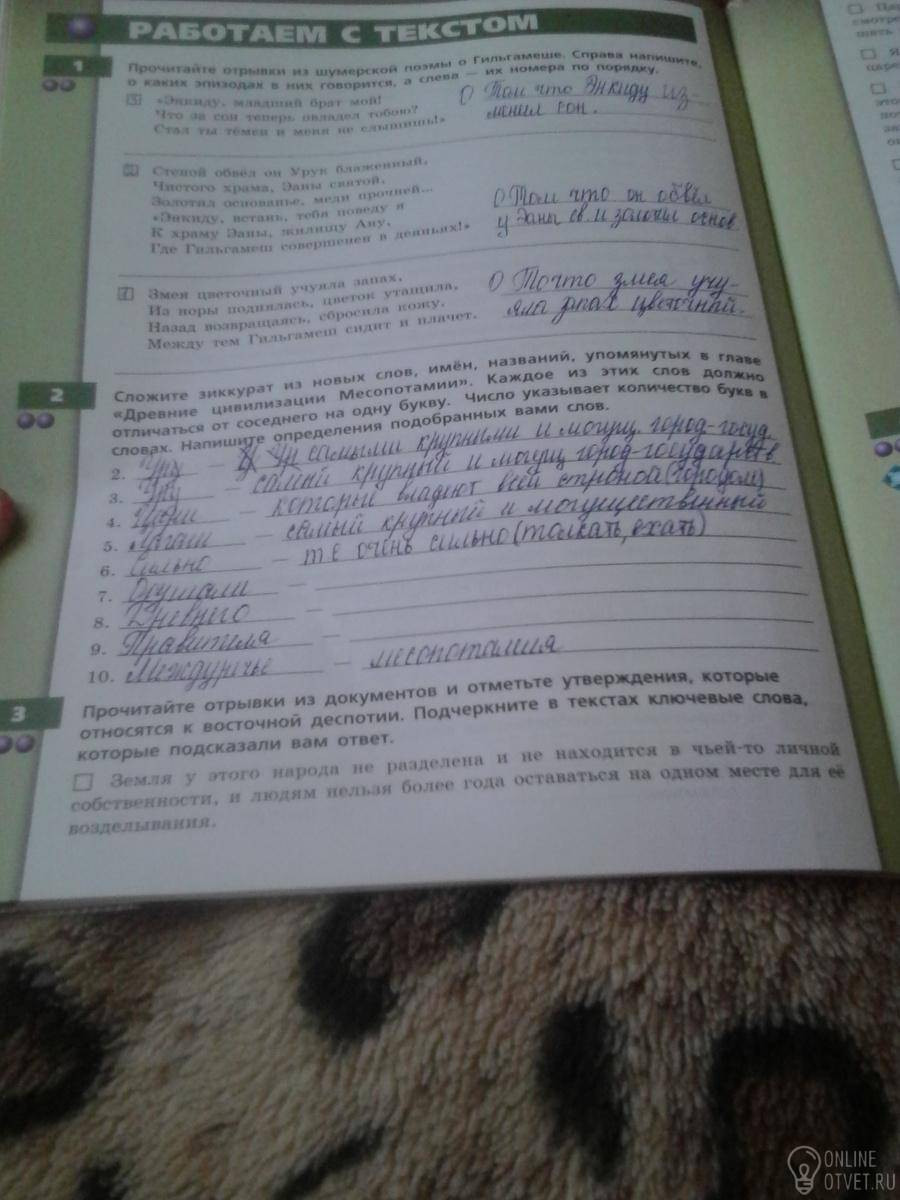 РАБОТАЕМ С ТЕКСТОМ
1
Прочитайте отрывки из шумерской поэмы о Гильгамеше. Справа напишите,
о каких эпизодах в них говорится, а слева — их номера по порядку.
«Энкиду, младший брат мой!
Что за сон теперь овладел тобою?
Стал ты тёмен и меня не слышишь!»
О Том что Энкиду из-
менил сон.
Стеной обвёл он Урук блаженный,
Чистого храма, Эаны святой,
Золотил основанье, меди прочней...
«Энкиду, встань, тебя поведу я
К храму Эаны, жилищу Ану,
Где Гильгамеш совершенен в деяньях!»
О Том что он обвёл
у Эаны св. и золотил основ.
Змея цветочный учуяла запах,
Из норы поднялась, цветок утащила,
Назад возвращаясь, сбросила кожу.
Между тем Гильгамеш сидит и плачет.
О То что змея учу-
яла запах цветочный.
2
Сложите зиккурат из новых слов, имён, названий, упомянутых в главе
«Древние цивилизации Месопотамии». Каждое из этих слов должно
отличаться от соседнего на одну букву. Число указывает количество букв в
словах. Напишите определения подобранных вами слов.
2. — самыми крупными и могущ. город-госуд
3. — самый крупный и могущ город-государств
4. Цари — которые владеют всей страной (городом)
5. Лагаш — самый крупный и могущественный
6. Сильно — т е очень сильно (толкать, ехать)
7. —
8. Древнего —
9. Правителя —
10. Междуречье — месопотамия
3
Прочитайте отрывки из документов и отметьте утверждения, которые
относятся к восточной деспотии. Подчеркните в текстах ключевые слова,
которые подсказали вам ответ.
Земля у этого народа не разделена и не находится в чьей-то личной
собственности, и людям нельзя более года оставаться на одном месте для её
возделывания.
ONLINE
OTVET.RU